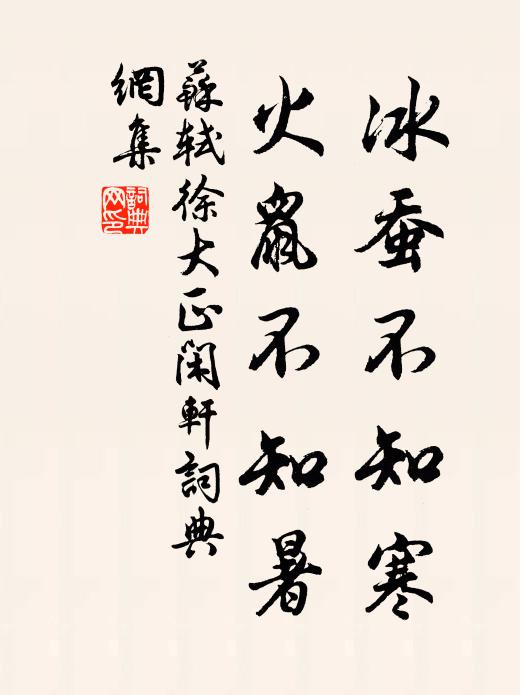 冰蚕不知寒
火鼠不知暑
蘇軾徐大正閑軒詞典
網集
詞典網印